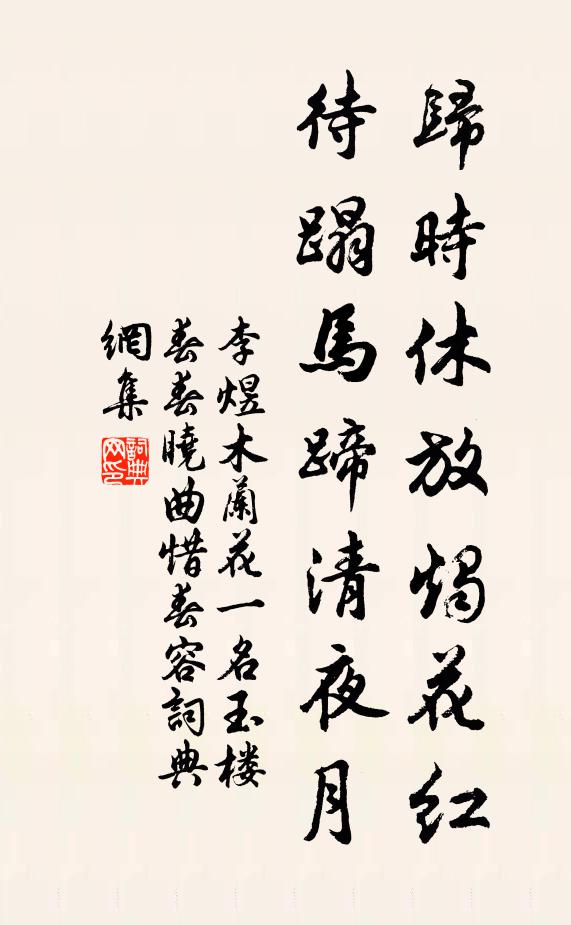 歸時休放燭花紅
待蹋馬蹄清夜月
李煜木蘭花一名玉楼
春春曉曲惜春容詞典
網集
詞典
网印